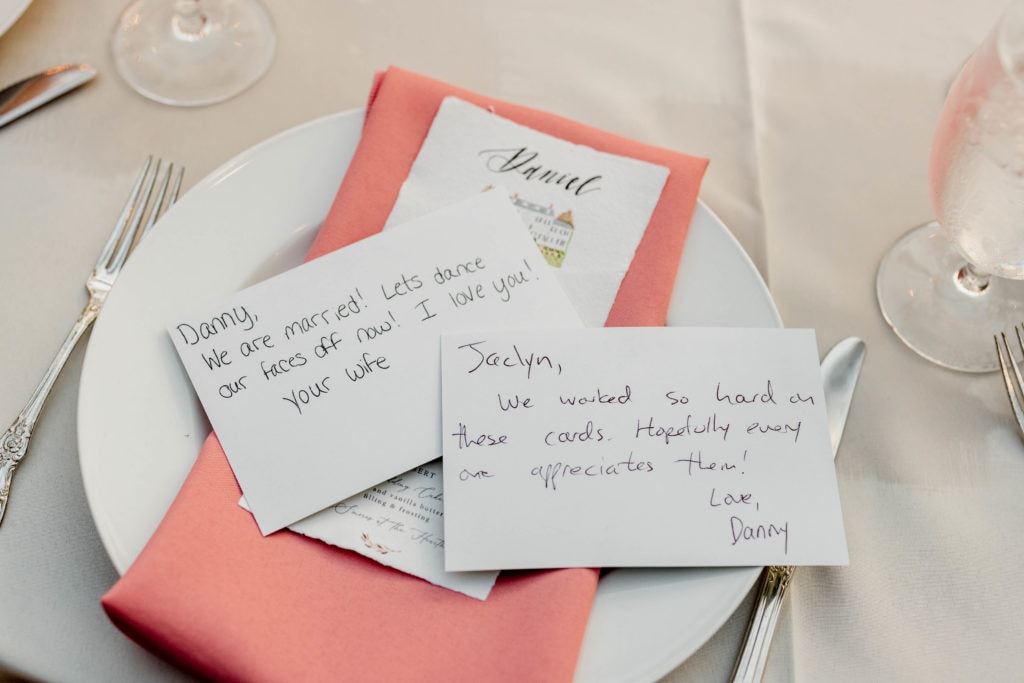 Daniel
Danny,
We are married! Lets dance
our faces off now! I love you!
your wife
Jaclyn,
We worked so hard on
these cards. Hopefully every
one appreciates them!
Love,
Danny
and vanilla butter
filling & frosting